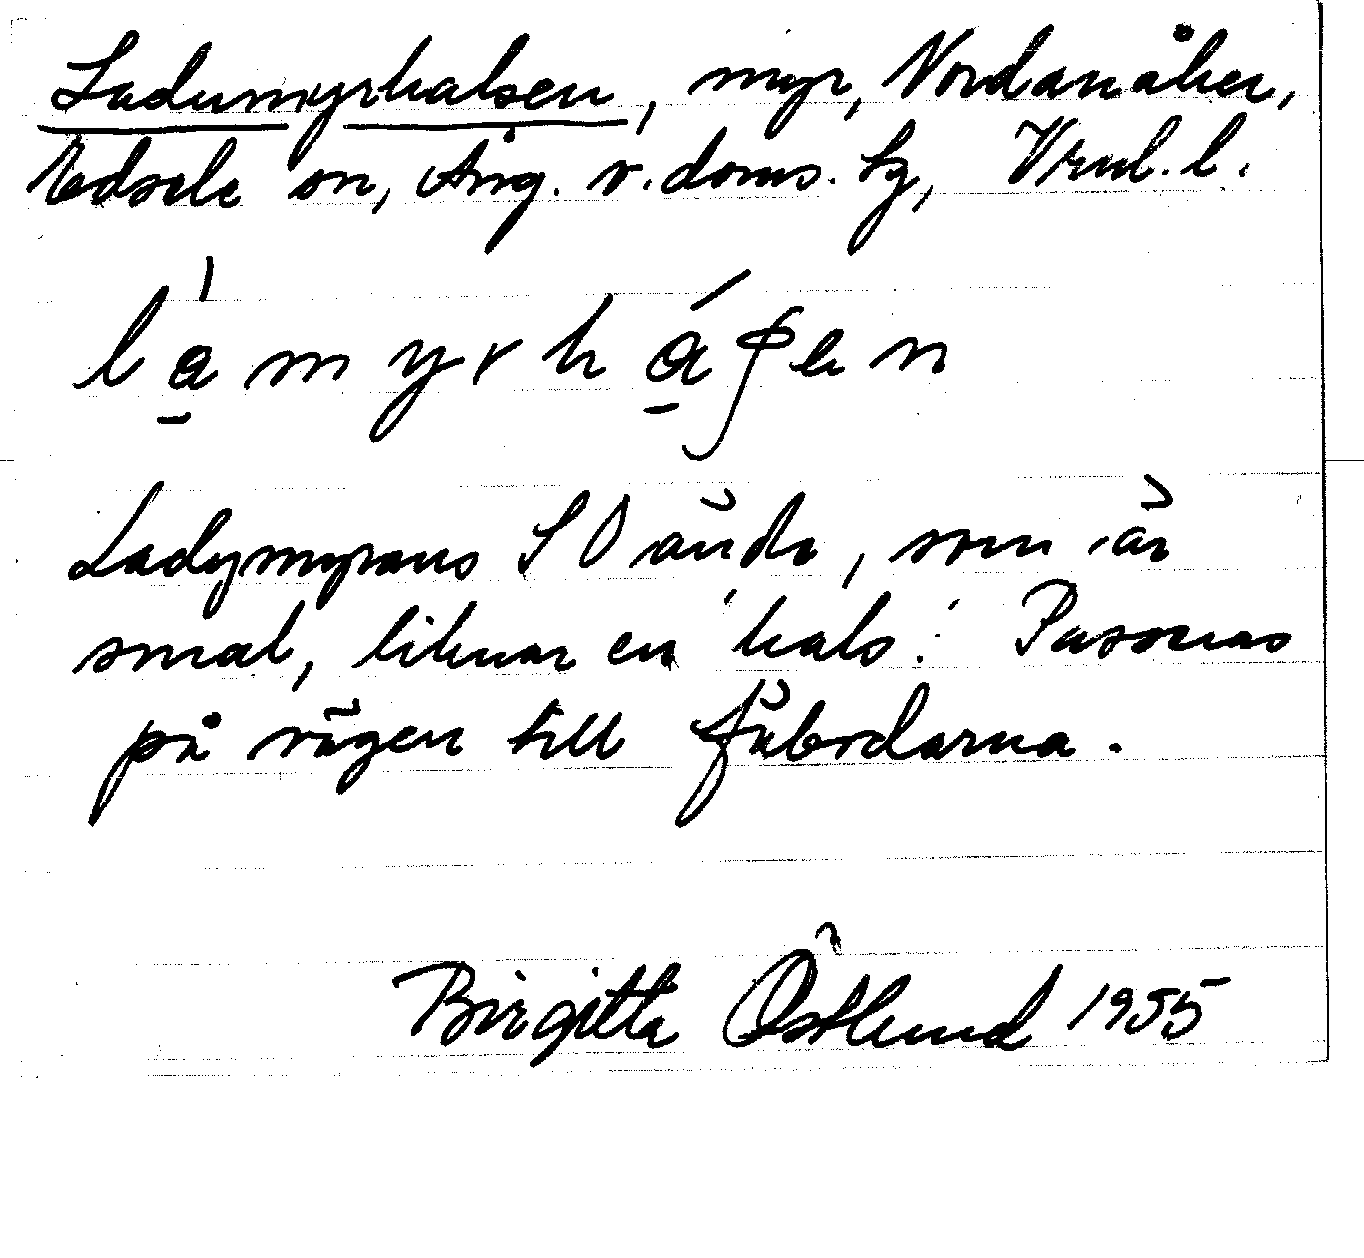 Ladumyrhalsen, myr, Nordanåker,
Edsele sn, Ång. v. doms. tg, Vrml. l.
Ladumyrans SO ände, som är
smal, liknar en hals. Passeras
på vägen till fäbodarna.
Birgitta Östlund 1955